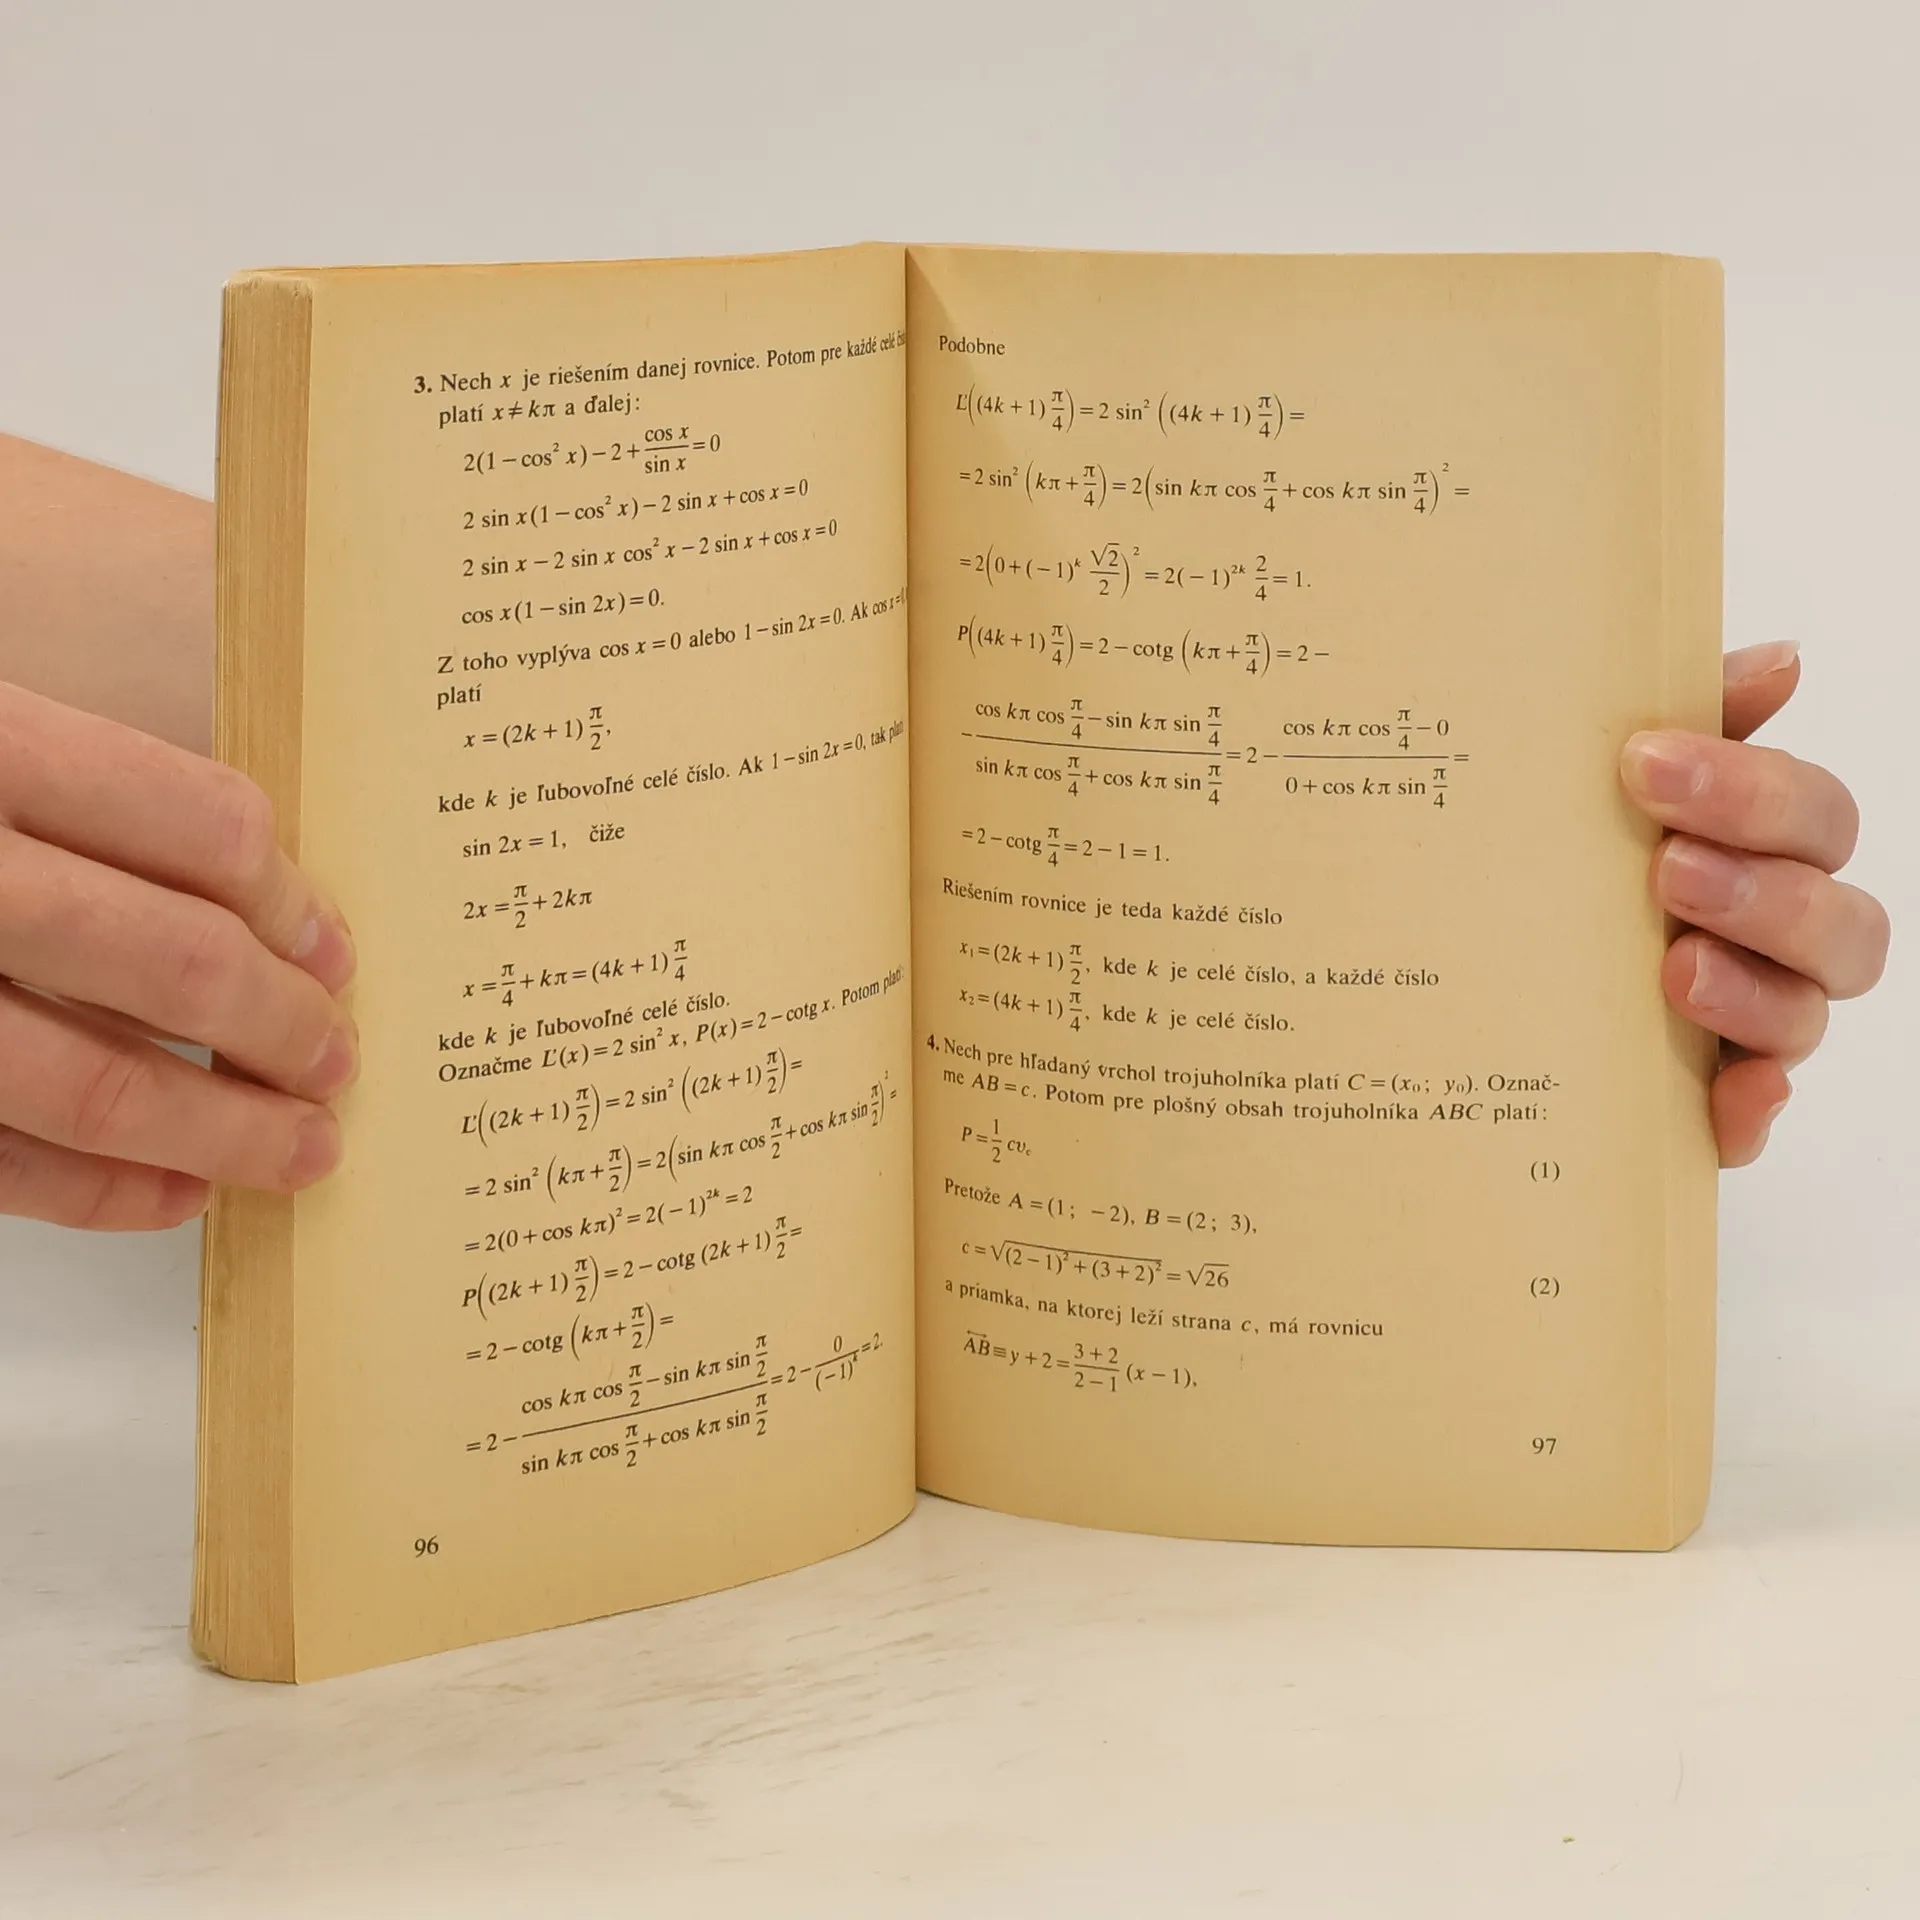 3. Nech x je riešením danej rovnice. Potom pre každé celé
platí x ≠ kπ a ďalej:
2(1 − cos² x) − 2 + cos x / sin x = 0
2 sin x (1 − cos² x) − 2 sin x + cos x = 0
2 sin x − 2 sin x cos² x − 2 sin x + cos x = 0
cos x (1 − sin 2x) = 0.
Z toho vyplýva cos x = 0 alebo 1 − sin 2x = 0. Ak cos x =
platí
x = (2k + 1) π/2,
kde k je ľubovoľné celé číslo. Ak 1 − sin 2x = 0, tak
sin 2x = 1, čiže
2x = π/2 + 2kπ
x = π/4 + kπ = (4k + 1) π/4
kde k je ľubovoľné celé číslo.
Označme Ľ(x) = 2 sin² x, P(x) = 2 − cotg x. Potom platí:
Ľ((2k + 1) π/2) = 2 sin² ((2k + 1) π/2) =
= 2 sin² (kπ + π/2) = 2(sin kπ cos π/2 + cos kπ sin π/2)² =
= 2(0 + cos kπ)² = 2(−1)²ᵏ = 2
P((2k + 1) π/2) = 2 − cotg (2k + 1) π/2 =
= 2 − cotg (kπ + π/2) =
= 2 − (cos kπ cos π/2 − sin kπ sin π/2) / (sin kπ cos π/2 + cos kπ sin π/2) = 2 − 0/(−1)ᵏ = 2.
96
Podobne
Ľ((4k + 1) π/4) = 2 sin² ((4k + 1) π/4) =
= 2 sin² (kπ + π/4) = 2(sin kπ cos π/4 + cos kπ sin π/4)² =
= 2(0 + (−1)ᵏ √2/2)² = 2(−1)²ᵏ 2/4 = 1.
P((4k + 1) π/4) = 2 − cotg (kπ + π/4) = 2 −
− (cos kπ cos π/4 − sin kπ sin π/4) / (sin kπ cos π/4 + cos kπ sin π/4) = 2 − (cos kπ cos π/4 − 0) / (0 + cos kπ sin π/4) =
= 2 − cotg π/4 = 2 − 1 = 1.
Riešením rovnice je teda každé číslo
x₁ = (2k + 1) π/2, kde k je celé číslo, a každé číslo
x₂ = (4k + 1) π/4, kde k je celé číslo.
4. Nech pre hľadaný vrchol trojuholníka platí C = (x₀; y₀). Označ-
me AB = c. Potom pre plošný obsah trojuholníka ABC platí:
P = 1/2 cv_c (1)
Pretože A = (1; −2), B = (2; 3),
c = √((2 − 1)² + (3 + 2)²) = √26 (2)
a priamka, na ktorej leží strana c, má rovnicu
↔AB ≡ y + 2 = (3 + 2)/(2 − 1) (x − 1),
97